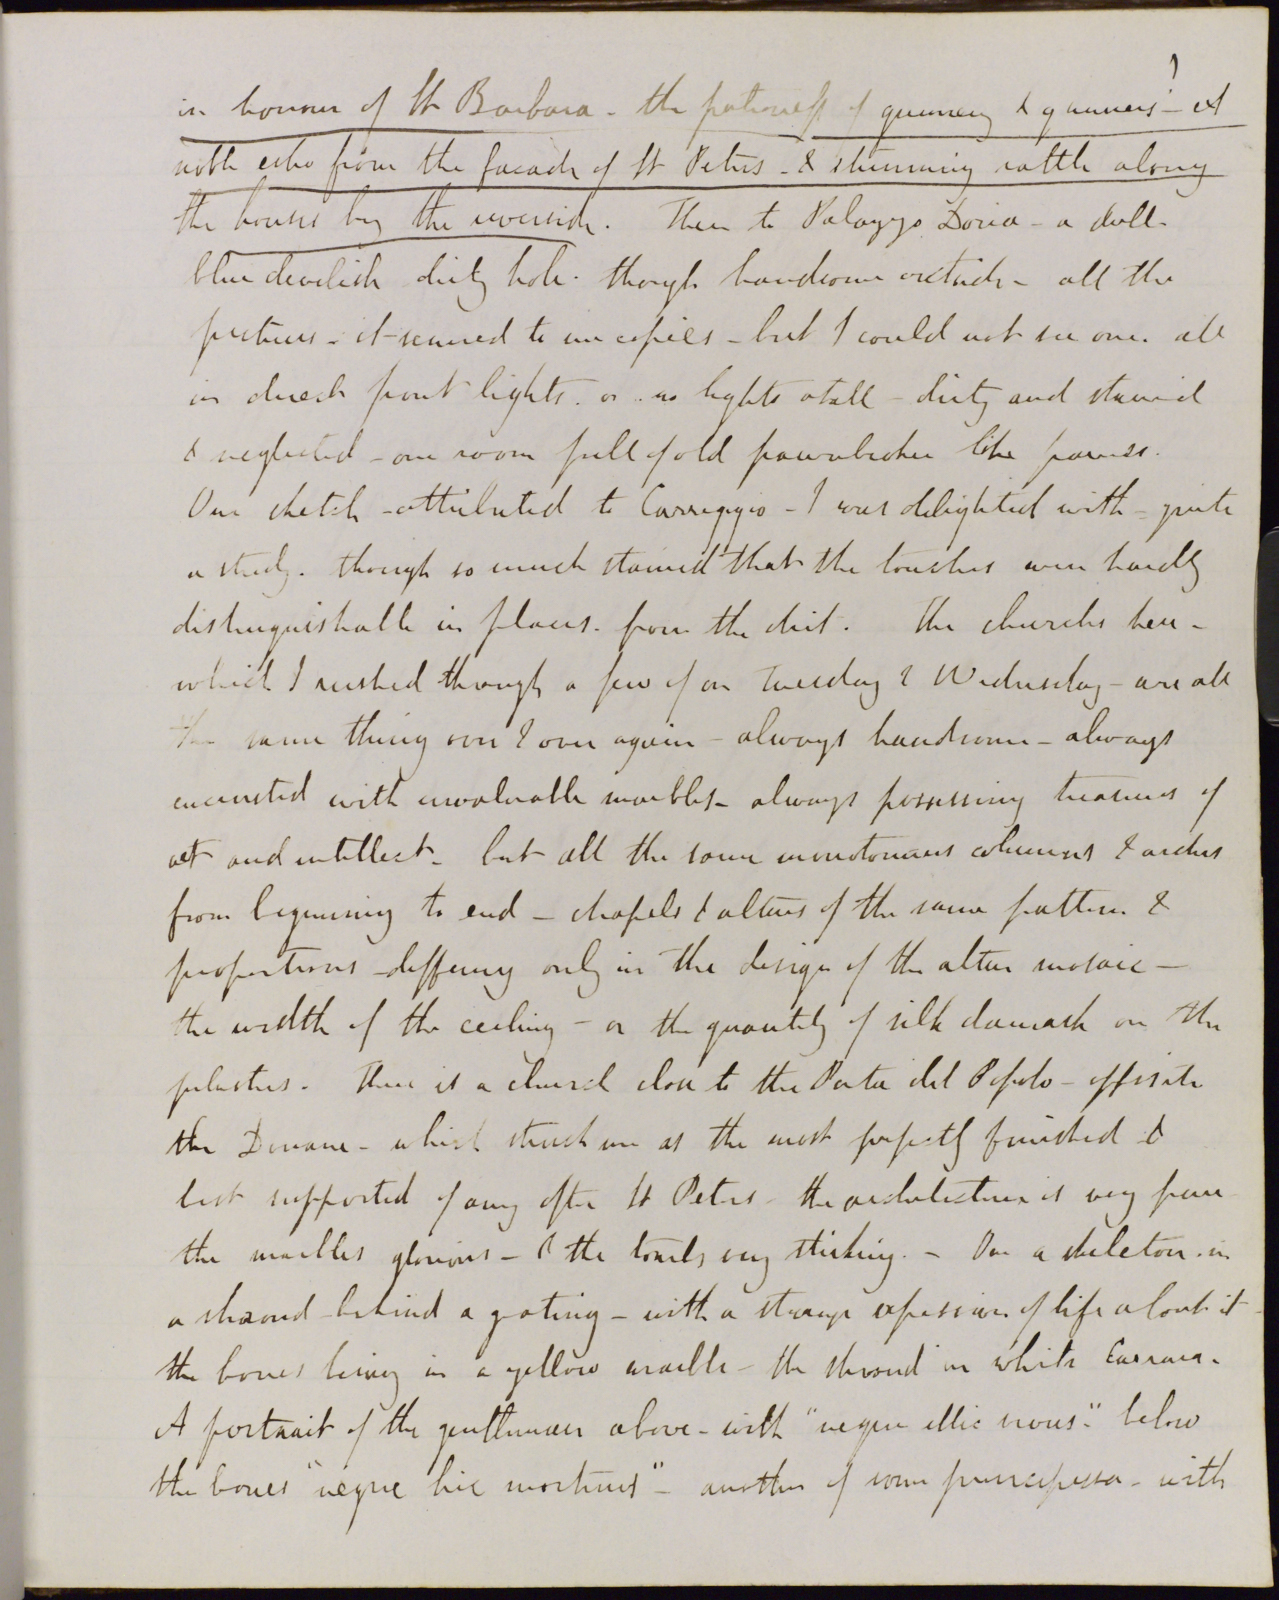 in honour of St Barbara - the patroness of gunnery & gunners! - A
noble echo from the facade of St Peters - & stunning rattle along
the houses by the riverside. Then to Palazzo Doria - a dull
blue devilish dirty hole - though handsome outside - all the
pictures - it seemed to me copies - but I could not see one. all
in direct front lights. or no lights atall - dirty and stained
& neglected - one room full of old pawnbroker like frames.
One sketch - attributed to Correggio - I was delighted with - quite
a study. though so much stained that the touches were hardly
distinguishable in places. from the dirt. The churches here -
which I rushed through a few of on Tuesday & Wednesday - are all
the same thing over & over again - always handsome - always
encrusted with invaluable marbles - always possessing treasures of
art and intellect - but all the same monotonous columns & arches
from beginning to end - chapels & altars of the same pattern &
proportions - differing only in the design of the altar mosaic -
the width of the ceiling - or the quantity of silk damask on the
pilasters. There is a church close to the Porta del Popolo - opposite
the Douane - which struck me as the most perfectly finished &
best supported of any after St Peters - the architecture is very pure
the marbles glorious - & the tombs very striking. - One a skeleton in
a shroud behind a grating - with a strange expression of life about it -
the bones being in a yellow marble - the shroud in white Carrara.
A portrait of the gentleman above - with "neque illic vivus." below
the bones "neque hic mortuus" - another of some principessa - with